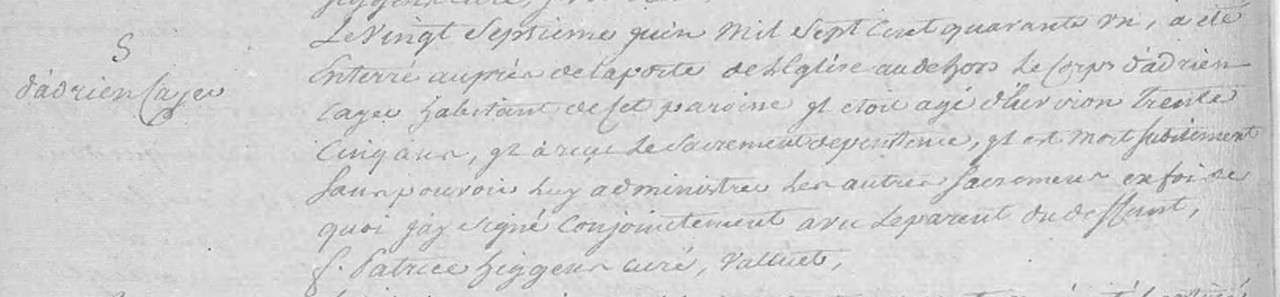 Le Vingt Septieme juin Mil Sept Cent quarante un, a eté
S
Enterré auprés de la porte de L'Eglise au dehors Le Corps d'adrien
d'adrien Cayer
Cayer habitant de Cet paroisse jl etoit agé d'Environ Trente
Cinq ans, jl à reçu Le Sacrement de penitence, jl est Mort Subitement
Sans pouvoir Luy administrer Les autres Sacremens en foi de
quoi j'ay Signé Conjointement avec Le parent du deffunt,
f. Patrice higgens curé,